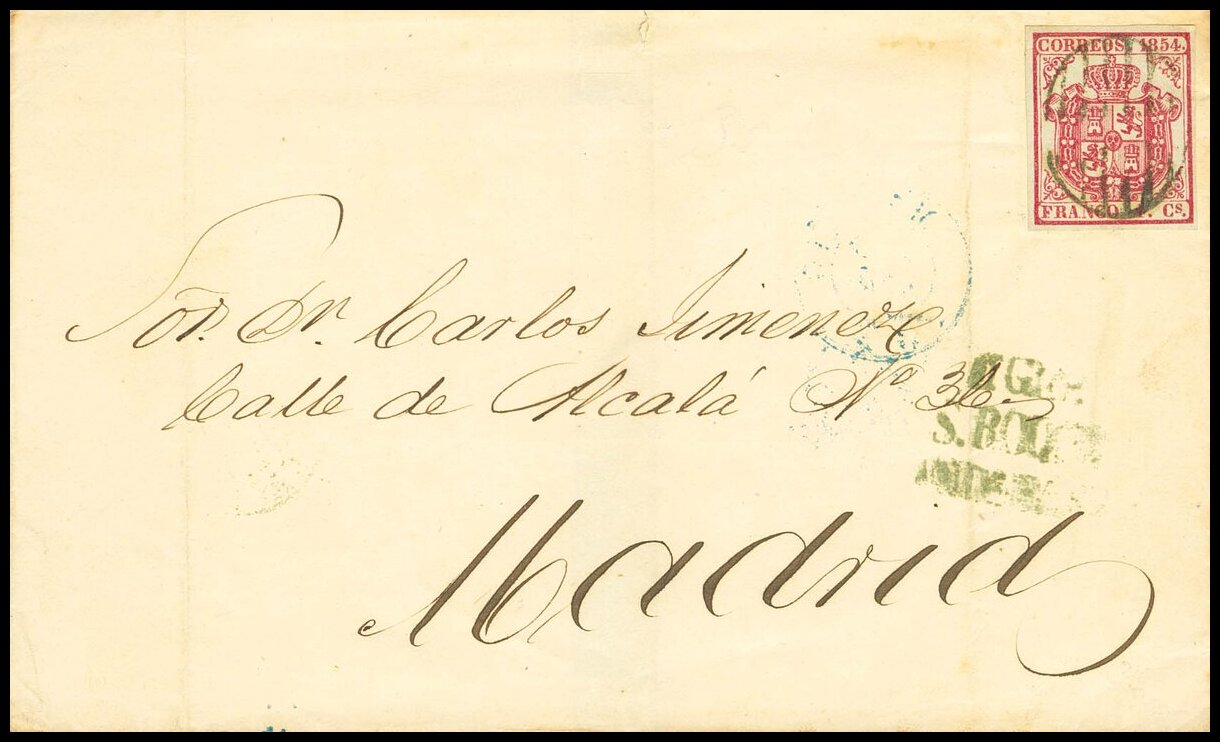 CORREOS 1854.
FRANCO Cs.
Sor. Dr. Carlos Jimenez
Calle de Alcalá No 36.
Madrid